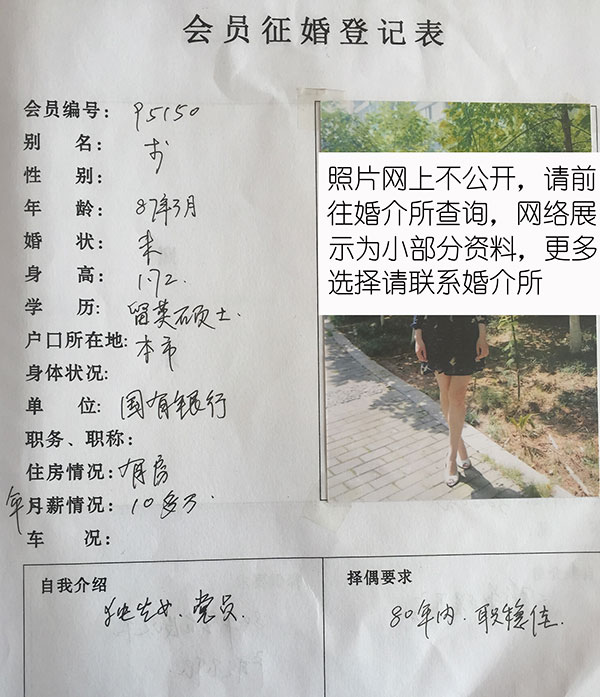 会员征婚登记表
会员编号: P5150
别 名:
性 别:
年 龄: 87年3月
婚 状: 未
身 高: 1.72.
学 历: 留英硕士.
户口所在地: 本市
身体状况:
单 位: 国有银行
职务、职称:
住房情况: 有房
年月薪情况: 10多万.
车 况:
照片网上不公开，请前
往婚介所查询，网络展
示为小部分资料，更多
选择请联系婚介所
自我介绍
独生女. 党员.
择偶要求
80年内. 职稳佳.